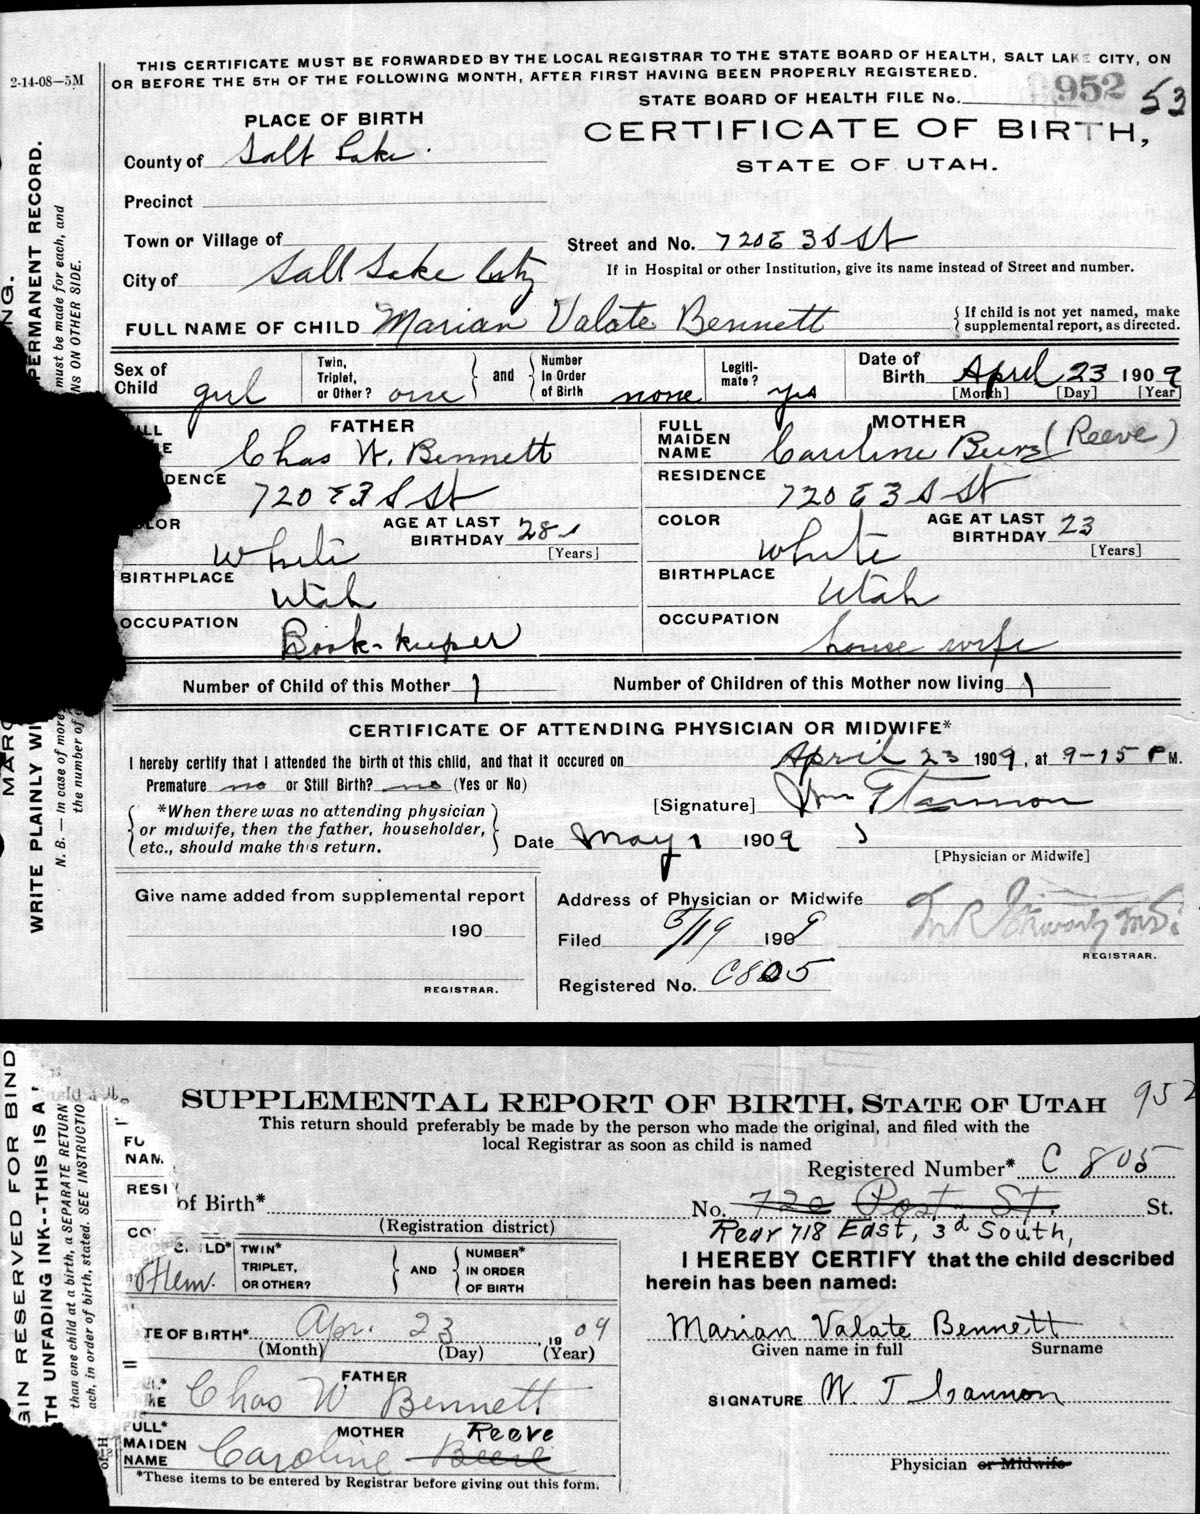 2-14-08—5M
THIS CERTIFICATE MUST BE FORWARDED BY THE LOCAL REGISTRAR TO THE STATE BOARD OF HEALTH, SALT LAKE CITY, ON
OR BEFORE THE 5TH OF THE FOLLOWING MONTH, AFTER FIRST HAVING BEEN PROPERLY REGISTERED.
STATE BOARD OF HEALTH FILE No. 952 53
PLACE OF BIRTH
CERTIFICATE OF BIRTH,
STATE OF UTAH.
County of Salt Lake.
Precinct
Town or Village of
Street and No. 720 E 3 S St
City of Salt Lake City
If in Hospital or other Institution, give its name instead of Street and number.
FULL NAME OF CHILD Marian Valate Bennett
{ If child is not yet named, make
supplemental report, as directed.
Sex of Child girl
Twin, Triplet, or Other? one } and { Number In Order of Birth none
Legiti-mate? yes
Date of Birth April 23 1909
[Month] [Day] [Year]
FATHER
Chas W. Bennett
DENCE 720 E 3 S St
COLOR White
AGE AT LAST BIRTHDAY 28
[Years]
BIRTHPLACE Utah
OCCUPATION Book-keeper
MOTHER
FULL MAIDEN NAME Caroline (Reeve)
RESIDENCE 720 E 3 S St
COLOR White
AGE AT LAST BIRTHDAY 23
[Years]
BIRTHPLACE Utah
OCCUPATION house wife
Number of Child of this Mother 1
Number of Children of this Mother now living 1
CERTIFICATE OF ATTENDING PHYSICIAN OR MIDWIFE*
I hereby certify that I attended the birth of this child, and that it occured on April 23 1909, at 9-15 P M.
Premature no or Still Birth? no (Yes or No)
{ *When there was no attending physician
or midwife, then the father, householder,
etc., should make this return. }
[Signature] Wm T Cannon
Date May 1 1909
[Physician or Midwife]
Give name added from supplemental report
190
REGISTRAR.
Address of Physician or Midwife
Filed 5/19 1909
REGISTRAR.
Registered No. C805
WRITE PLAINLY WI
PERMANENT RECORD.
N. B. — in case of more
must be made for each, and
the number of
NS ON OTHER SIDE.
SUPPLEMENTAL REPORT OF BIRTH, STATE OF UTAH 952
This return should preferably be made by the person who made the original, and filed with the
local Registrar as soon as child is named
Registered Number* C 805
of Birth*
(Registration district)
No. 720 Post St. St.
Rear 718 East, 3d South,
CHILD* Fem.
TWIN* TRIPLET, OR OTHER? } AND { NUMBER* IN ORDER OF BIRTH
I HEREBY CERTIFY that the child described
herein has been named:
TE OF BIRTH* Apr. 23, 1909
(Month) (Day) (Year)
Marian Valate Bennett
Given name in full Surname
FATHER
Chas W Bennett
SIGNATURE W T Cannon
FULL* MAIDEN NAME
MOTHER Reeve
Caroline
Physician or Midwife
*These items to be entered by Registrar before giving out this form.
GIN RESERVED FOR BIND
TH UNFADING INK--THIS IS A
than one child at a birth, a SEPARATE RETURN
ach, in order of birth, stated. SEE INSTRUCTIO